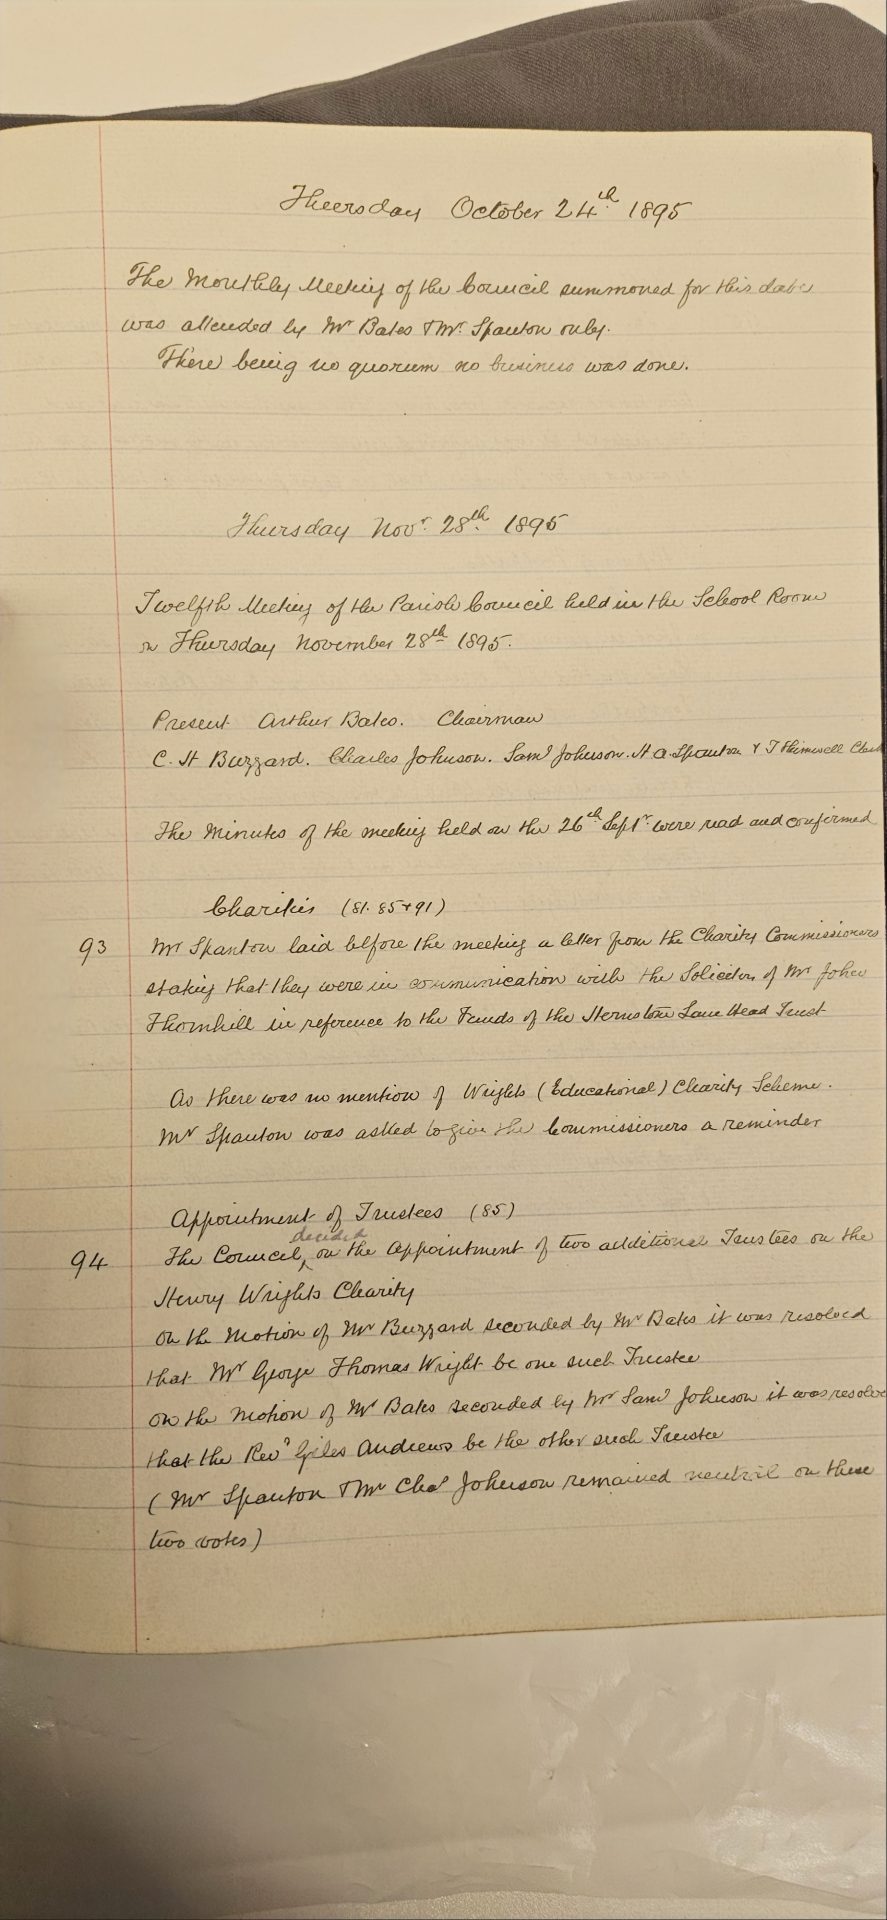 Thursday October 24th 1895
The Monthly Meeting of the Council summoned for this date
was attended by Mr Bates & Mr Spanton only.
There being no quorum no business was done.
Thursday Novr 28th 1895
Twelfth Meeting of the Parish Council held in the School Room
on Thursday November 28th 1895.
Present Arthur Bates. Chairman
C. H Buzzard. Charles Johnson. Saml Johnson. H A. Spanton & T
The Minutes of the meeting held on the 26th Septr were read and confirmed
Charities (81. 85 & 91)
93 Mr Spanton laid before the meeting a letter from the Charity Commissioners
stating that they were in communication with the Solicitors of Mr John
Thornhill in reference to the Funds of the Lane Head Trust
As there was no mention of Wrights (Educational) Charity Scheme.
Mr Spanton was asked to give the Commissioners a reminder
Appointment of Trustees (85)
decided
94 The Council, on the Appointment of two additional Trustees on the
Henry Wrights Charity
On the Motion of Mr Buzzard seconded by Mr Bates it was resolved
that Mr George Thomas Wright be one such Trustee
On the Motion of Mr Bates seconded by Mr Saml Johnson it was resolve
that the Revd Giles Andrews be the other such Trustee
(Mr Spanton & Mr Chas Johnson remained neutral on these
two votes)